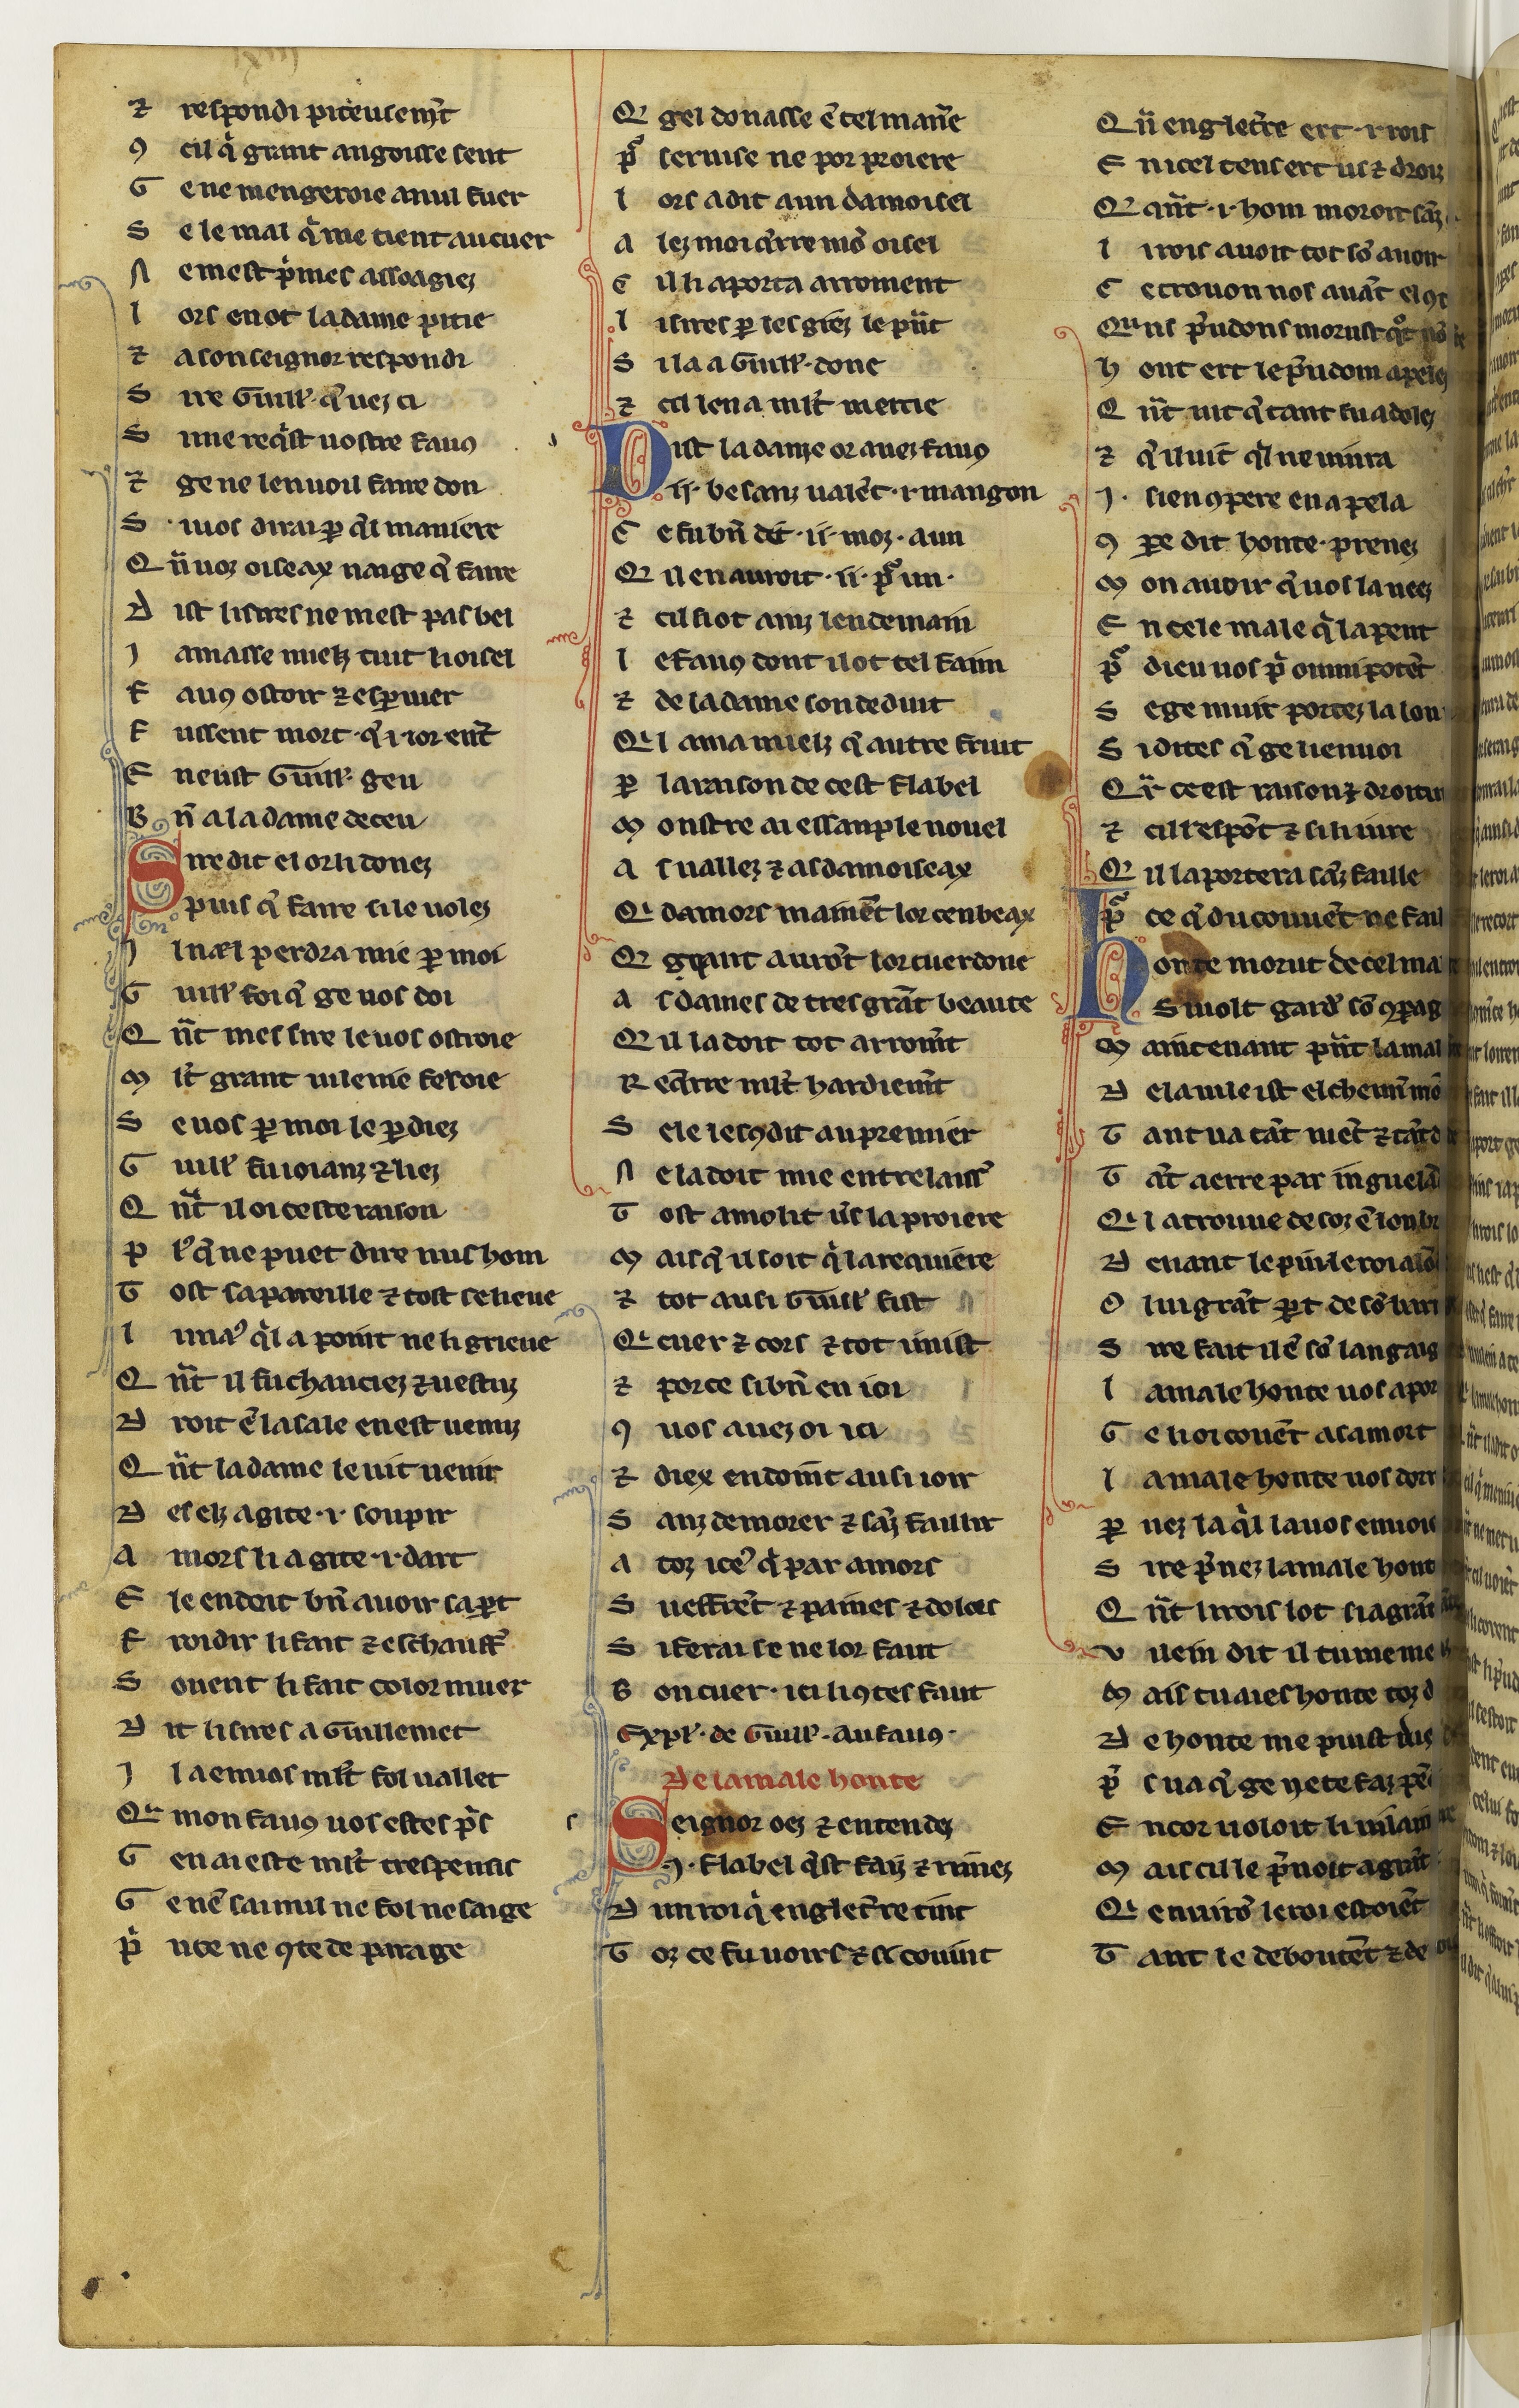 ⁊ respondi piteusem̅t
ꝯ cil q̇ grant angoisse sent
G e ne mengeroie a nul fuer
S e le mal q̇ me tient au cuer
N e mest p̍mes assoagiez
L ors en ot la dame pitie
⁊ a son seignor respondi
S ire Guill'. q̑ vez ci
S i me req̍st uostre fauꝯ
⁊ ge ne len uoil faire don
S i uos dirai ꝑ q̑l maniere
Q̈ n uoz oiseax naige q̑ faire
D ist li sires ne mest pas bel
J amasse mielz tuit li oisel
F auꝯ ostoir ⁊ esꝑuier
F ussent mort q̑ .i. ior ent̅
E n eust Guill' geu
B n̅ a la dame deceu
S ire dit el or li donez
puis q̑ faire si le uolez
J l nel perdra mie ꝑ moi
G uill' foi q̑ ge uos doi
Q n̅t mes sire le uos ostroie
M l̅t grant uilenie feroie
S e uos ꝑ moi le ꝑdiez
G uill' fu ioianz ⁊ liez
Q n̅t il oi ceste raison
P l' q̑ ne puet dire nus hom
T ost sapareille ⁊ tost se lieue
L i max q̍l a point ne li grieue
Q n̅t il fu chauciez ⁊ uestuz
D roit e̅ la sale en est uenuz
Q n̅t la dame le uit uenir
D es elz a gite .i. soupir
A mors li a gite .i. dart
E le en doit bn̅ auoir sa ꝑt
F roidir li fait ⁊ eschauff'
S ouent li fait color muer
D it li sires a Guillemet
J l a en uos ml̅t fol uallet
Q̍ mon fauꝯ uos estes p̍s
G en ai este ml̅t trespensis
G e ne̅ sai nul ne fol ne saige
P̍ nce ne ꝯte de parage
Q̍ gel donasse e̅ tel man̅e
P̉ seruise ne por proiere
L ors a dit a un damoisel
A lez moi q̑rre mo̅ oisel
C il li aporta arroment
L i sires ꝑ les giez le pn̅t
S i la a Guill'. done
⁊ cil len a ml̅t mercie
D ist la dame or auez fauꝯ
.ii. besanz uale̅t .i. mangon
C e fu bn̅ dit .ii. moz a un
Q̍ il en auroit .ii. p̉ un.
⁊ cil si ot ainz lendemain
L e fauꝯ dont il ot tel faim
⁊ de la dame son deduit
Q̍ l ama mielz q̑ autre fruit
P̲ la raison de cest flabel
M onstre ai essanple nouel
A s uallez ⁊ as damoiseax
Q̍ damors maine̅t lor cenbeax
Q̍ q̑ant auro̅t lor cuer done
A s dames de tres gra̅t beaute
Q̍ il la doit tot arrom̅t
R eq̑rre ml̅t hardiem̅t
S ele lescꝯdit au premier
N e la doit mie entrelaiss'
T ost amolit u̍s la proiere
M ais q̑ il soit q̍ la requiere
⁊ tot ausi Guill' fist
Q̍ cuer ⁊ cors ⁊ tot imist
⁊ porce si bn̅ en ioi
ꝯ uos auez oi ici
⁊ diex en doint ausi ioir
S anz demorer ⁊ sa̅z faillir
A toz iceꝰ q̍ par amors
S ueffre̅t ⁊ paines ⁊ dolors
S i ferai se ne lor faut
B on cuer. ici li ꝯtes faut
Expl'. de Guill'. au fauꝯ.
De la male honte
S eignor oez ⁊ entendez
.J. flabel q̍st faiz ⁊ rimez
D un roi q̍ englet̅re tint
T oz ce fu uoirs ⁊ si couint
Q̈ n englet̅re ert .i. rois
E n icel tens ert us ⁊ droiz
Q̍ qn̅t .i. hom moroit sa̅z
L i rois auoit tot so̅ auoir
C e trouon nos aua̅t el ꝯt
Q̍ uns p̍udons morust
H ont ert le p̍udom apelez
Q n̅t uit q̑ tant fu adolez
⁊ q̑ il uit q̍l ne uiura
J. sien ꝯpere en apela
ꝯ ꝑe dit honte. prenez
M on auoir q̑ uos la ueez
E n cele male q̍ la pent
P̉ dieu uos p̍ omnipote̅t
S e ge muir portez la lon
S i dites q̑ ge li enuoi
Q̍ r ce est raison ⁊ droiture
⁊ cil respo̅t ⁊ si li iure
Q̍ il la portera sa̅z faille
P̉ ce q̑ du couue̅t ne fail
H onte morut de cel ma
S i uolt gard' so̅ ꝯpag
M aintenant pn̅t la mal
D e la uile ist el chemi̅
T ant ua ca̅t uie̅t
T a̅t a erre par
Q̍ l a trouue
D euant le
O lui gra̅t ꝑt de so̅
S ire fait il e̅ so̅ langaig
L a male honte uos apor
G e li oi coue̅t a sa mort
L a male honte uos don
P̲ nez la q̍l la uos enuoi
S ire p̍nez la male hont
Q n̅t li rois lot si a gra̅t
V ilein dit il tu me me
M ais tu aies honte toz
D e honte me puist
P̍ s ua q̑ ge ne te faz
E ncor uoloit li uilain
M ais cil le p̍noit a grant
Q̍ enuiro̅ le roi estoie̅t
T ant le deboute̅t ⁊ de